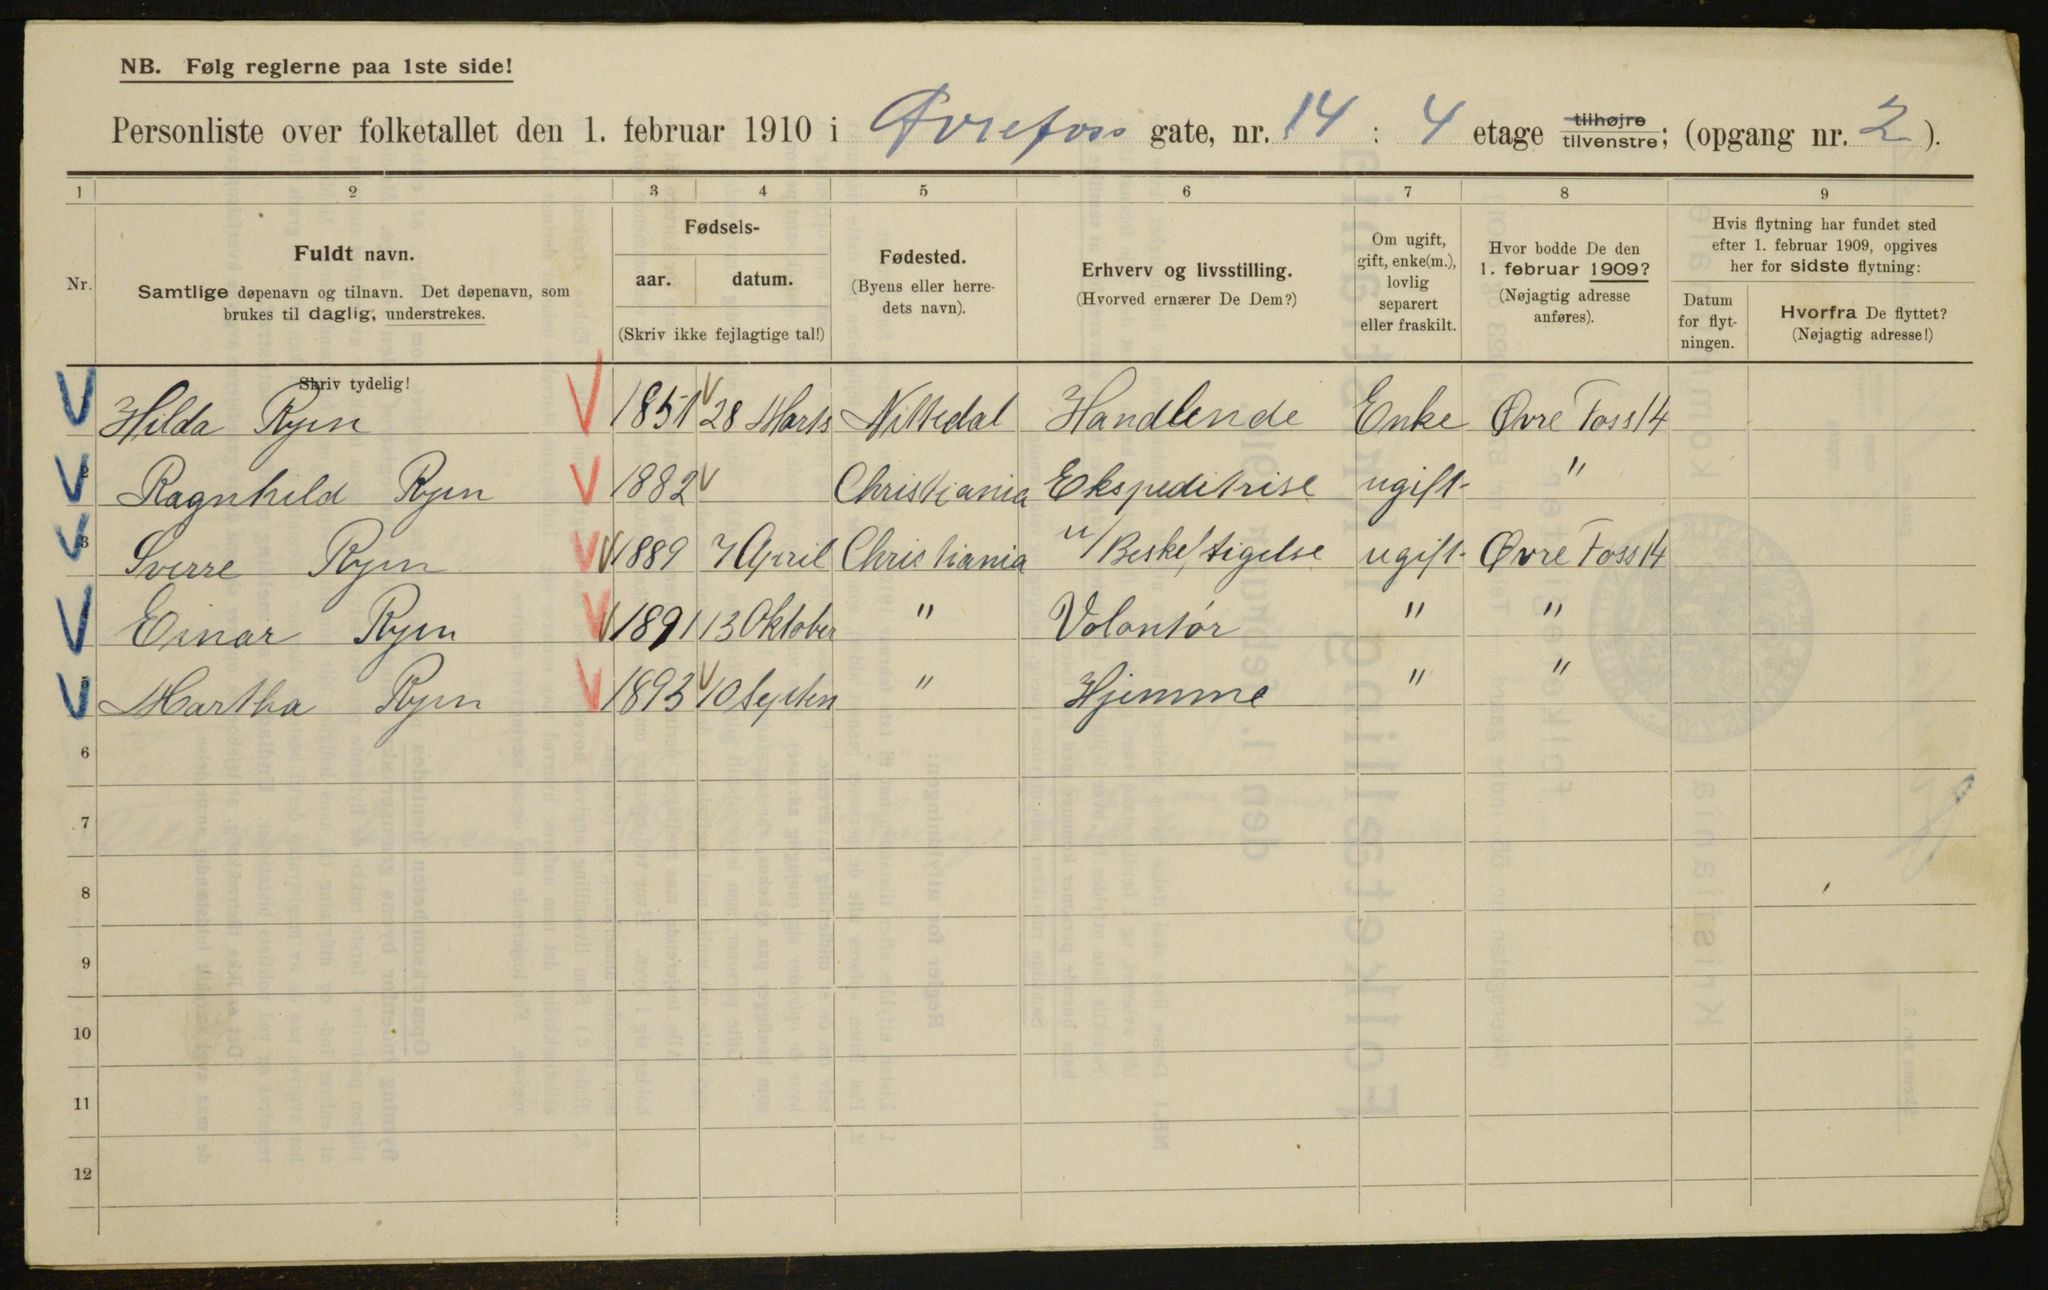 NB. Følg reglerne paa 1ste side!
Personliste over folketallet den 1. februar 1910 i Øvrefoss gate, nr. 14 : 4 etage tilhøjre/tilvenstre; (opgang nr. 2).
1 2 3 4 5 6 7 8 9
Nr.
Fuldt navn.
Samtlige døpenavn og tilnavn. Det døpenavn, som
brukes til daglig, understrekes.
Skriv tydelig!
Fødsels-
aar. datum.
(Skriv ikke fejlagtige tal!)
Fødested.
(Byens eller herre-
dets navn).
Erhverv og livsstilling.
(Hvorved ernærer De Dem?)
Om ugift,
gift, enke(m.),
lovlig
separert
eller fraskilt.
Hvor bodde De den
1. februar 1909?
(Nøjagtig adresse
anføres).
Hvis flytning har fundet sted
efter 1. februar 1909, opgives
her for sidste flytning:
Datum
for flyt-
ningen.
Hvorfra De flyttet?
(Nøjagtig adresse!)
Hilda Ryen 1851 28 Marts Nittedal Handlende Enke Øvre Foss 14
2 Ragnhild Ryen 1882 Christiania Ekspeditrise ugift "
3 Sverre Ryen 1889 7 April Christiania u/Beskeftigelse ugift Øvre Foss 14
Einar Ryen 1891 13 Oktober " Volontør " "
5 Martha Ryen 1893 10 Septen " Hjemme " "
6
7
8
9
10
11
12